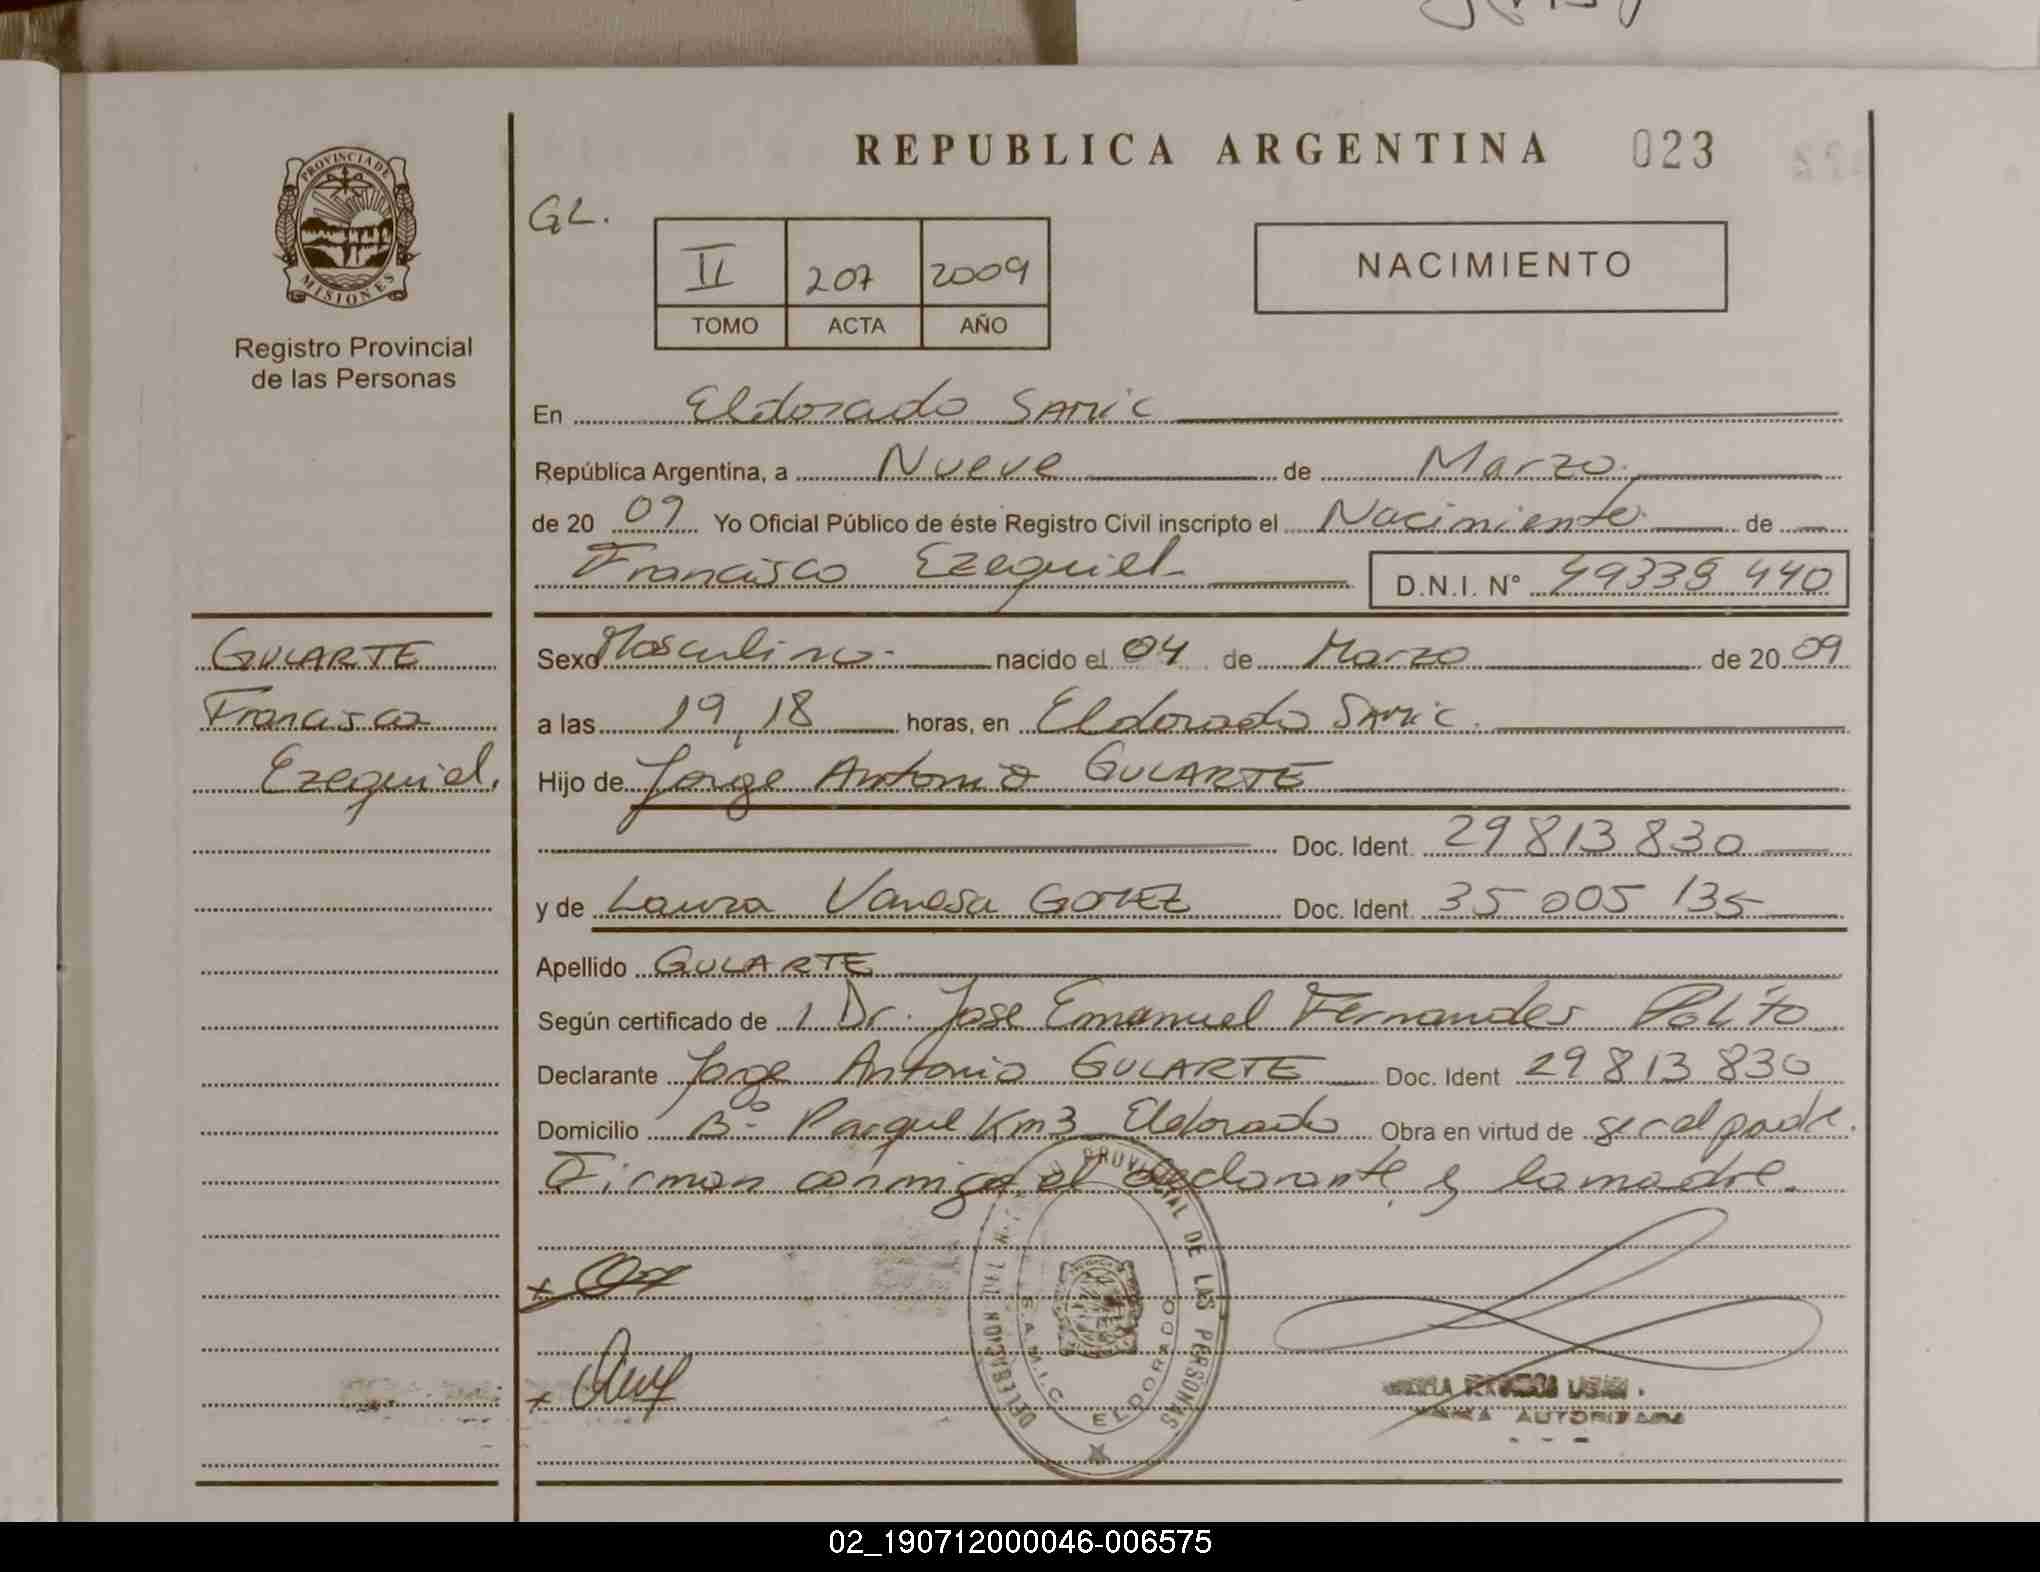 REPUBLICA ARGENTINA 023
PROVINCIA DE
MISIONES
Registro Provincial
de las Personas
GL.
II 207 2009
TOMO ACTA AÑO
NACIMIENTO
En Eldorado SAMIC
República Argentina, a Nueve de Marzo.
de 20 09 Yo Oficial Público de éste Registro Civil inscripto el Nacimiento de
Francisco Ezequiel D.N.I. N° 49339 440
GULARTE
Francisco
Ezequiel.
Sexo Masculino nacido el 04 de Marzo de 20 09
a las 19,18 horas, en Eldorado SAMIC.
Hijo de Jorge Antonio GULARTE
Doc. Ident. 29 813 830
y de Laura Vanesa GOMEZ Doc. Ident. 35 005 135
Apellido GULARTE
Según certificado de 1 Dr. Jose Emanuel Fernandes Polito
Declarante Jorge Antonio GULARTE Doc. Ident 29 813 830
Domicilio B° Parque Km3 Eldorado Obra en virtud de ser el padre.
Firman conmigo el declarante y la madre.
DELEGACION DEL PROVINCIAL DE LAS PERSONAS
S.A.M.I.C. ELDORADO
AUTORIZADA
02_190712000046-006575